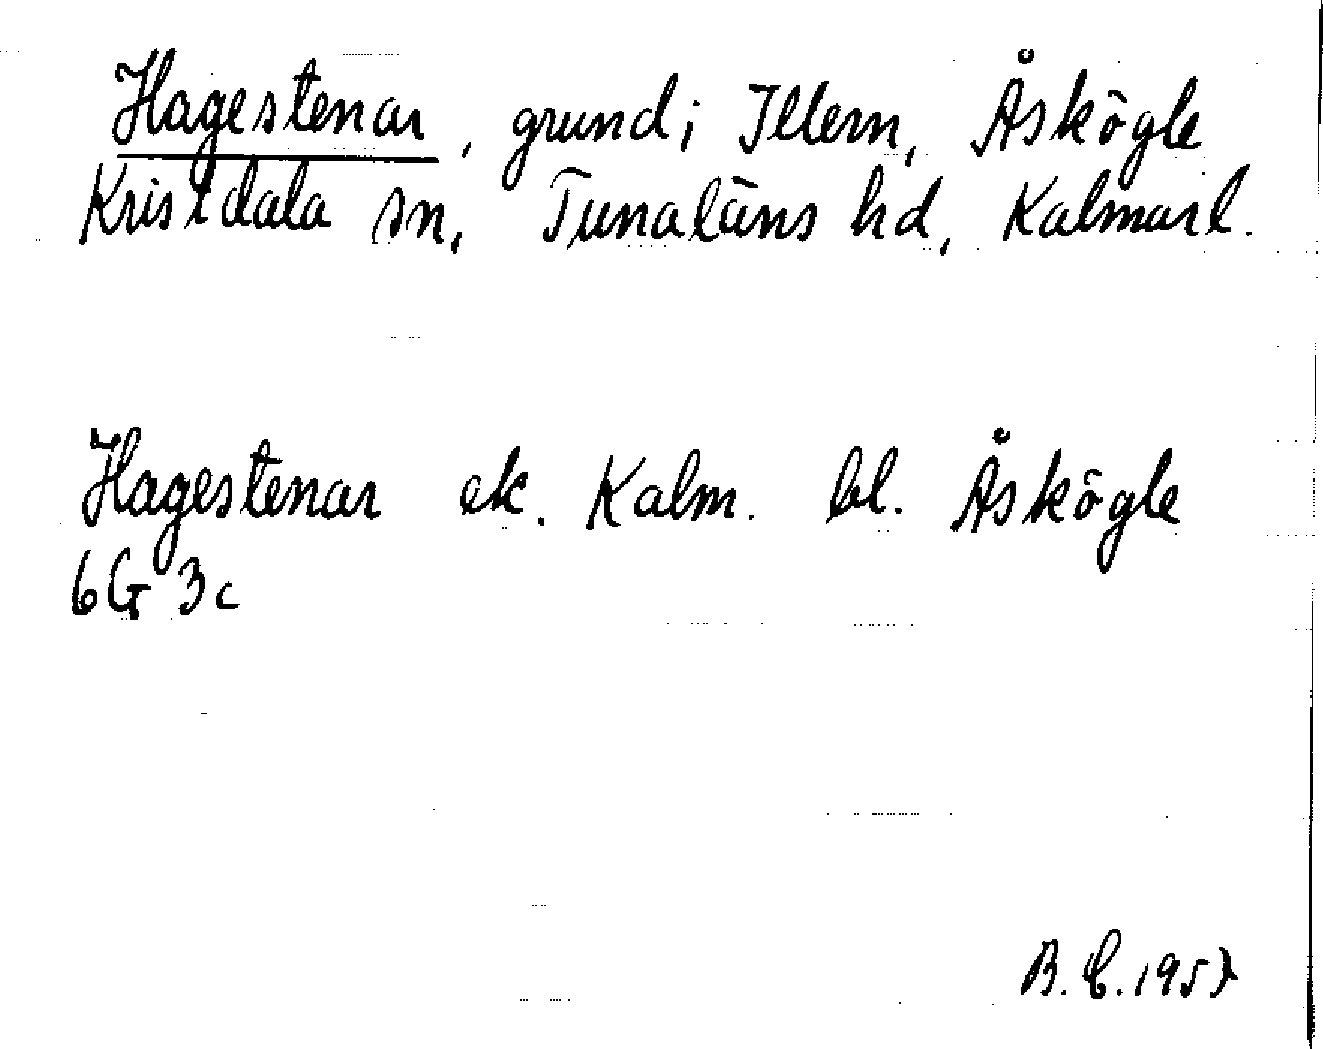 Hagestenar, grund i Illern, Åskögle
Kristdala sn, Tunaläns hd, Kalmar l.
Hagestenar ek. Kalm. bl. Åskögle
6G 3c
B.E. 1957